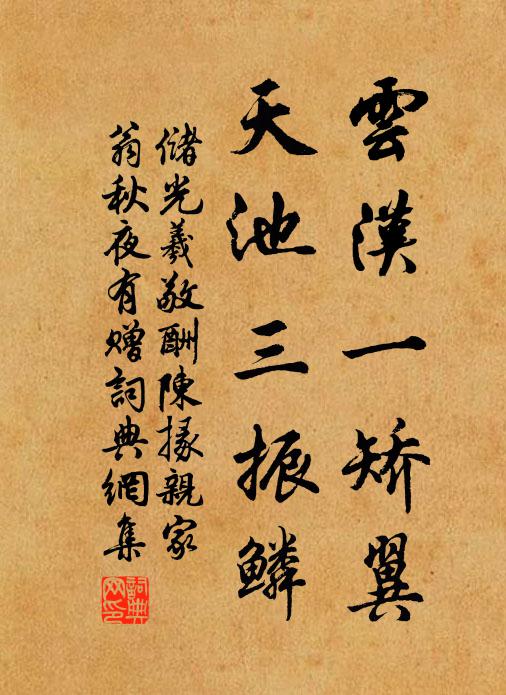 雲漢一矯翼
天池三振鱗
儲光羲敬酬陳掾親家
翁秋夜有贈詞典網集
詞典网印